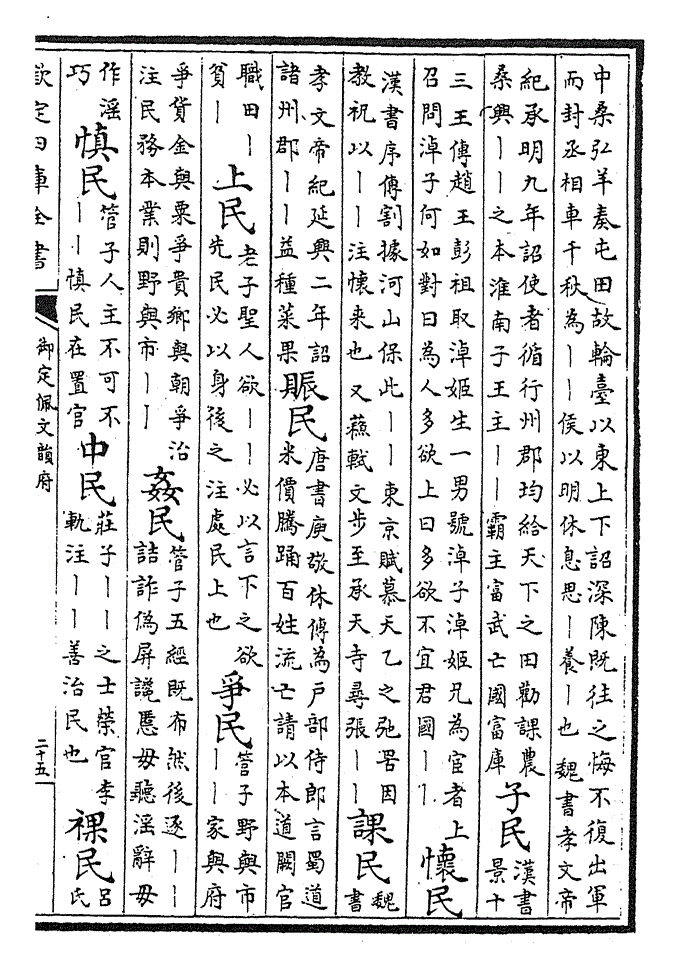 中桑弘羊奏屯田故輪臺以東上下詔深陳既往之悔不復出軍
而封丞相車千秋為——侯以明休息思—養—也 魏書孝文帝
紀承明九年詔使者循行州郡均給天下之田勸課農
桑興——之本淮南子王主——霸主富武亡國富庫
子民
漢書
景十
三王傳趙王彭祖取淖姬生一男號淖子淖姬兄為宦者上
召問淖子何如對曰為人多欲上曰多欲不宜君國——
懷民
漢書序傳割據河山保此——東京賦慕天乙之弛罟因
教祝以——注懷来也 又蘇軾文步至承天寺尋張——
課民
魏
書
孝文帝紀延興二年詔
諸州郡——益種菜果
賑民
唐書庾敬休傳為户部侍郎言蜀道
米價騰踊百姓流亡請以本道闕官
職田—
貧—
上民
老子聖人欲——必以言下之欲
先民必以身後之注處民上也
爭民
管子野與市
——家與府
爭貨金與粟爭貴鄉與朝爭治
注民務本業則野與市——
姦民
管子五經既布然後逐——
詰詐偽屏讒慝毋聽淫辭毋
作淫
巧
慎民
管子人主不可不
——慎民在置官
中民
莊子——之士榮官李
軌注——善治民也
裸民
吕
氏
欽定四庫全書
御定佩文韻府
二十五